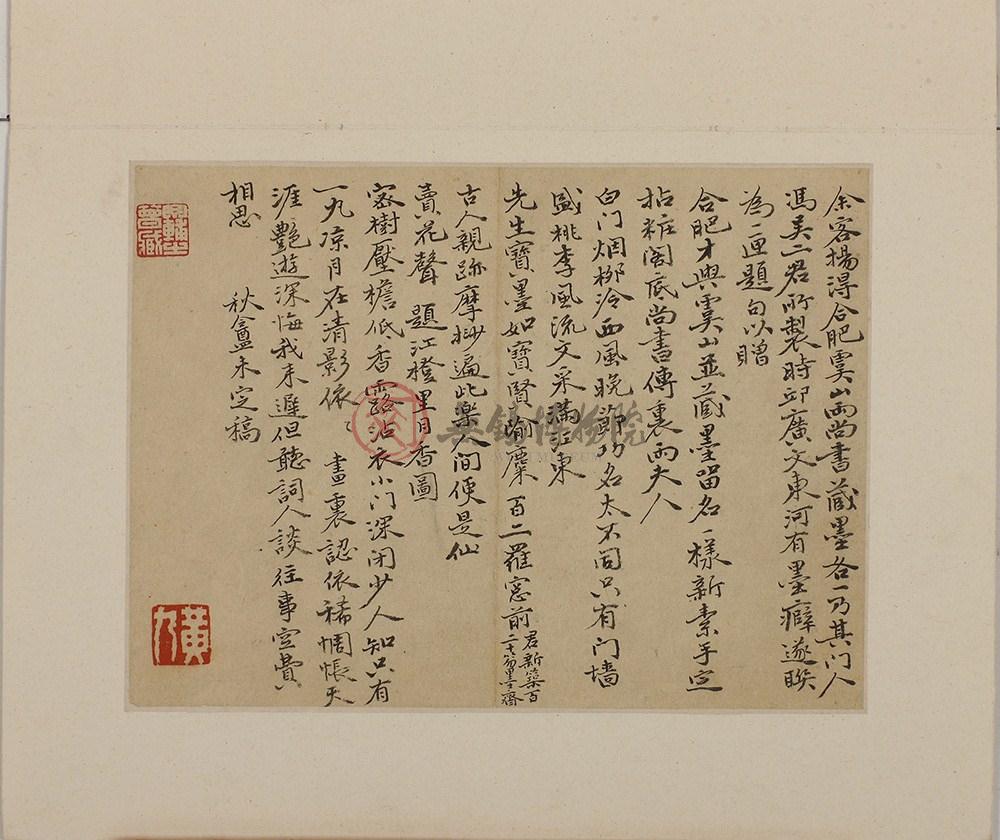 余客揚得合肥虞山兩尚書藏墨各一乃其門人
馮吴二君所製時邱廣文東河有墨癖遂联
為一匣題句以贈
合肥才與虞山並藏墨留名一樣新素手定
拈粧閣底尚書傳裏兩夫人
白门烟柳冷西風晚節功名太不同只有门墙
盛桃李風流文采滿江東
先生寶墨如寶賢隃麋百二羅窓前君新築百
二十笏墨齋
古人親跡摩挱遍此樂人间便是仙
賣花聲 題江橙里月香圖
密樹壓檐低香露沾衣小门深闭少人知只有
一丸凉月在清影依〻 畫裏認依稀惆悵天
涯艷遊深悔我来遲但聽詞人談往事空費
相思
秋盦未定稿
黄九
無錫博物院